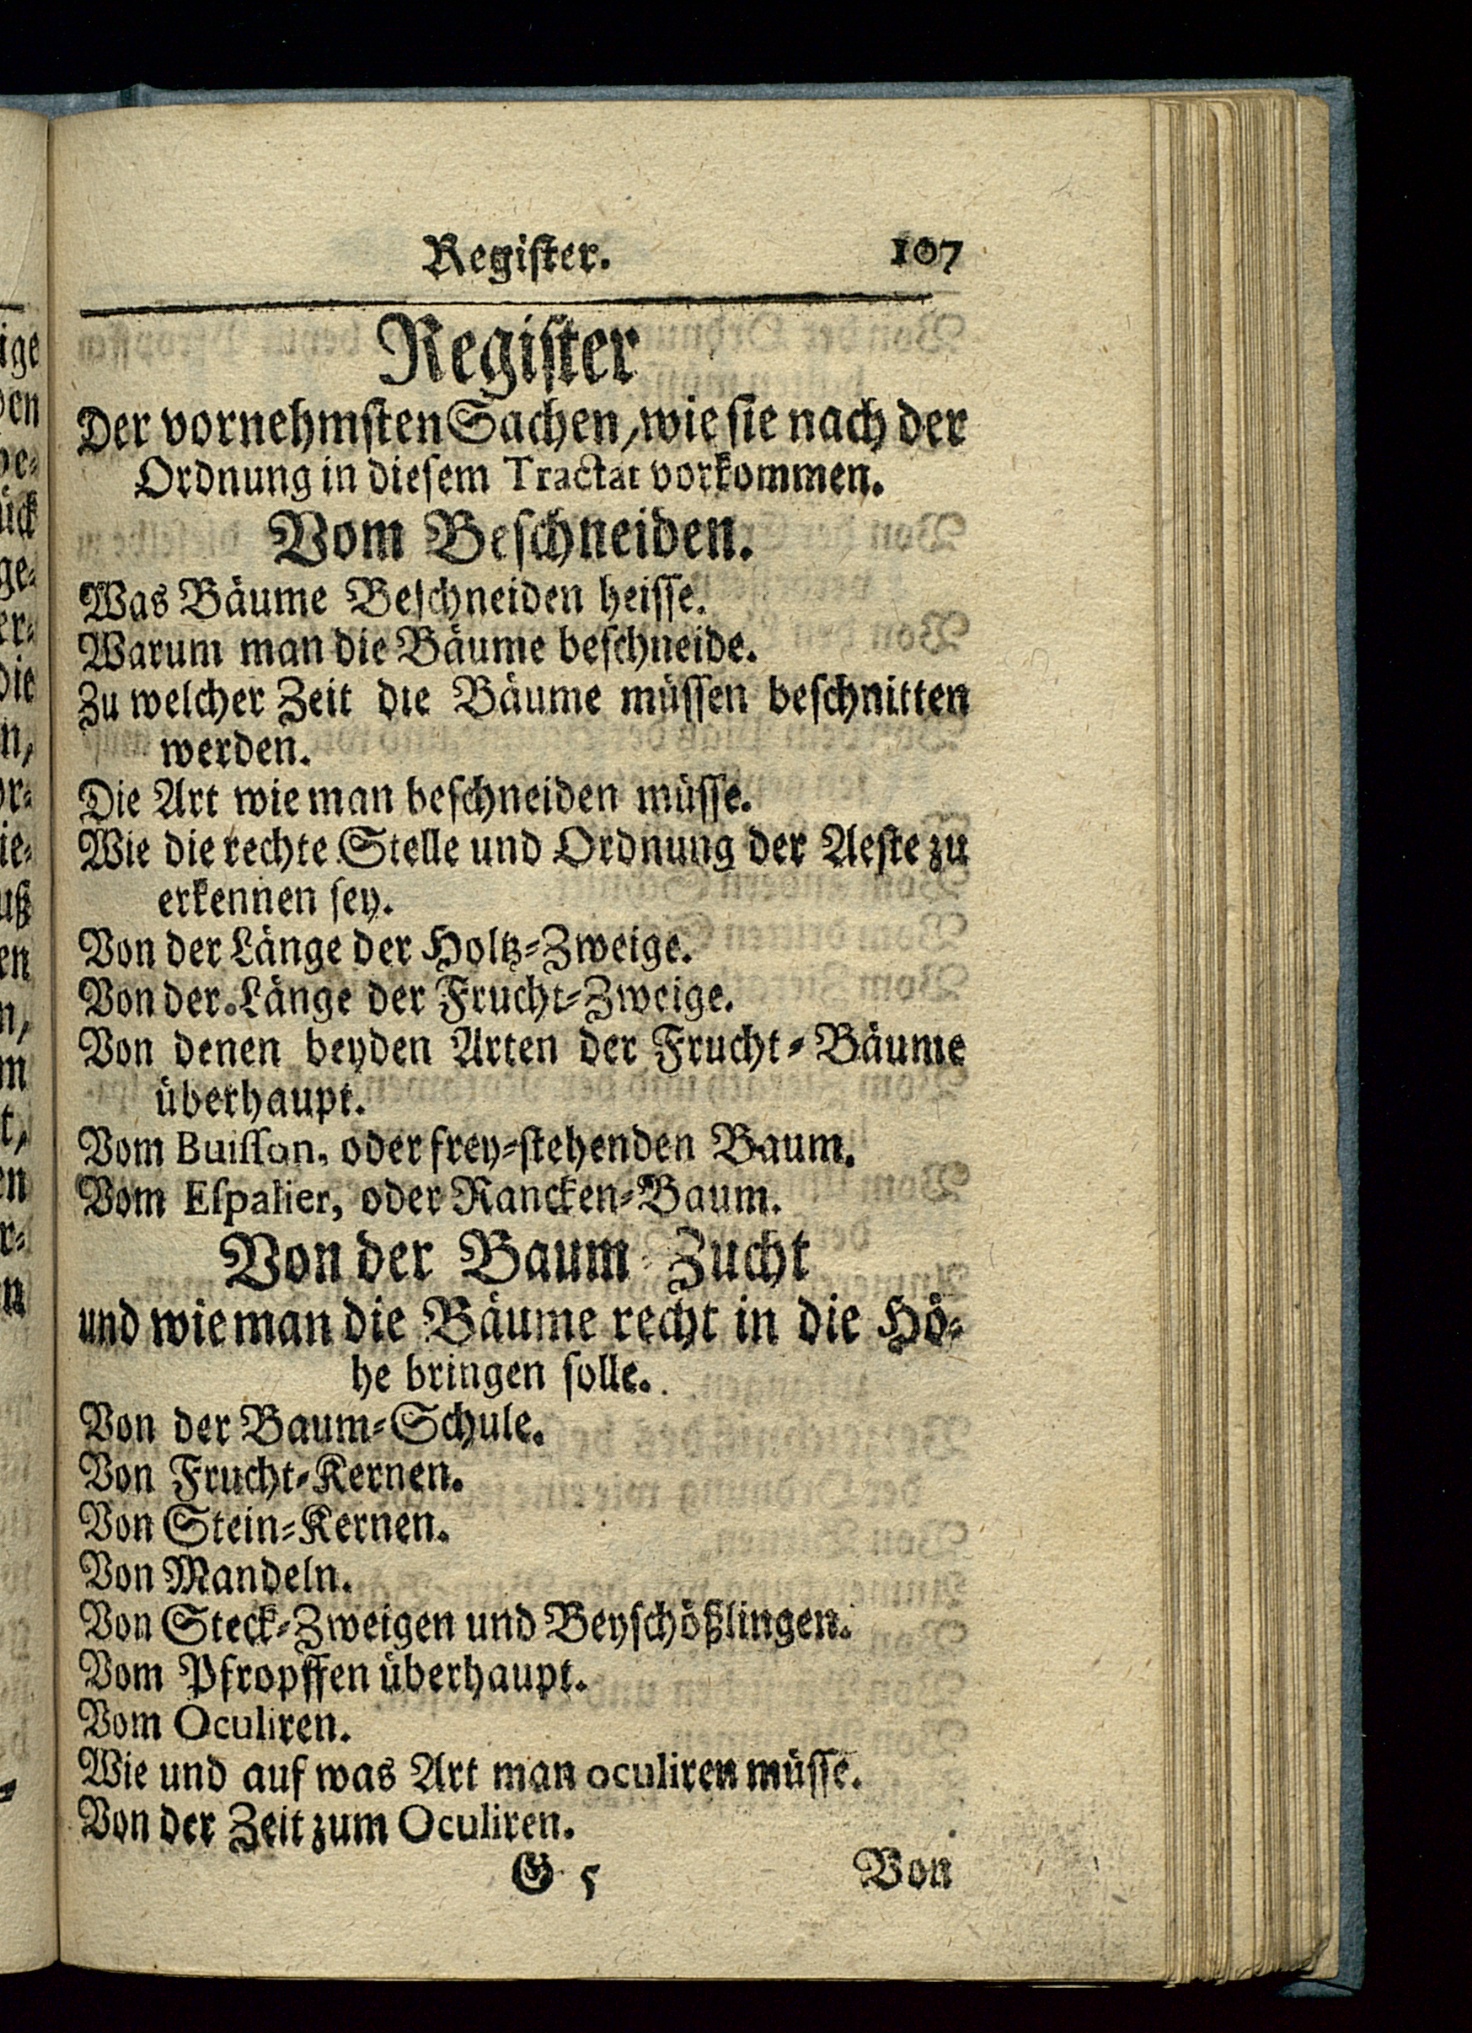 Register. 107
Register
Der vornehmsten Sachen, wie sie nach der
Ordnung in diesem Tractat vorkommen.
Vom Beschneiden.
Was Bäume Beschneiden heisse.
Warum man die Bäume beschneide.
Zu welcher Zeit die Bäume müssen beschnitten
werden.
Die Art wie man beschneiden müsse.
Wie die rechte Stelle und Ordnung der Aeste zu
erkennen sey.
Von der Länge der Holtz-Zweige.
Von der Länge der Frucht-Zweige.
Von denen beyden Arten der Frucht-Bäume
überhaupt.
Vom Buisson, oder frey-stehenden Baum.
Vom Espalier, oder Rancken-Baum.
Von der Baum-Zucht
und wie man die Bäume recht in die Hö-
he bringen solle.
Von der Baum-Schule.
Von Frucht-Kernen.
Von Stein-Kernen.
Von Mandeln.
Von Steck-Zweigen und Beyschößlingen.
Vom Pfropffen überhaupt.
Vom Oculiren.
Wie und auf was Art man oculiren müsse.
Von der Zeit zum Oculiren.
G 5 Von